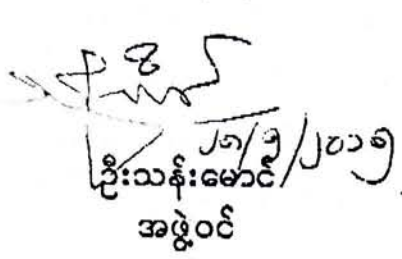 ၂၈/၅/၂၀၁၅
ဦးသန်းမောင်
အဖွဲ့ဝင်